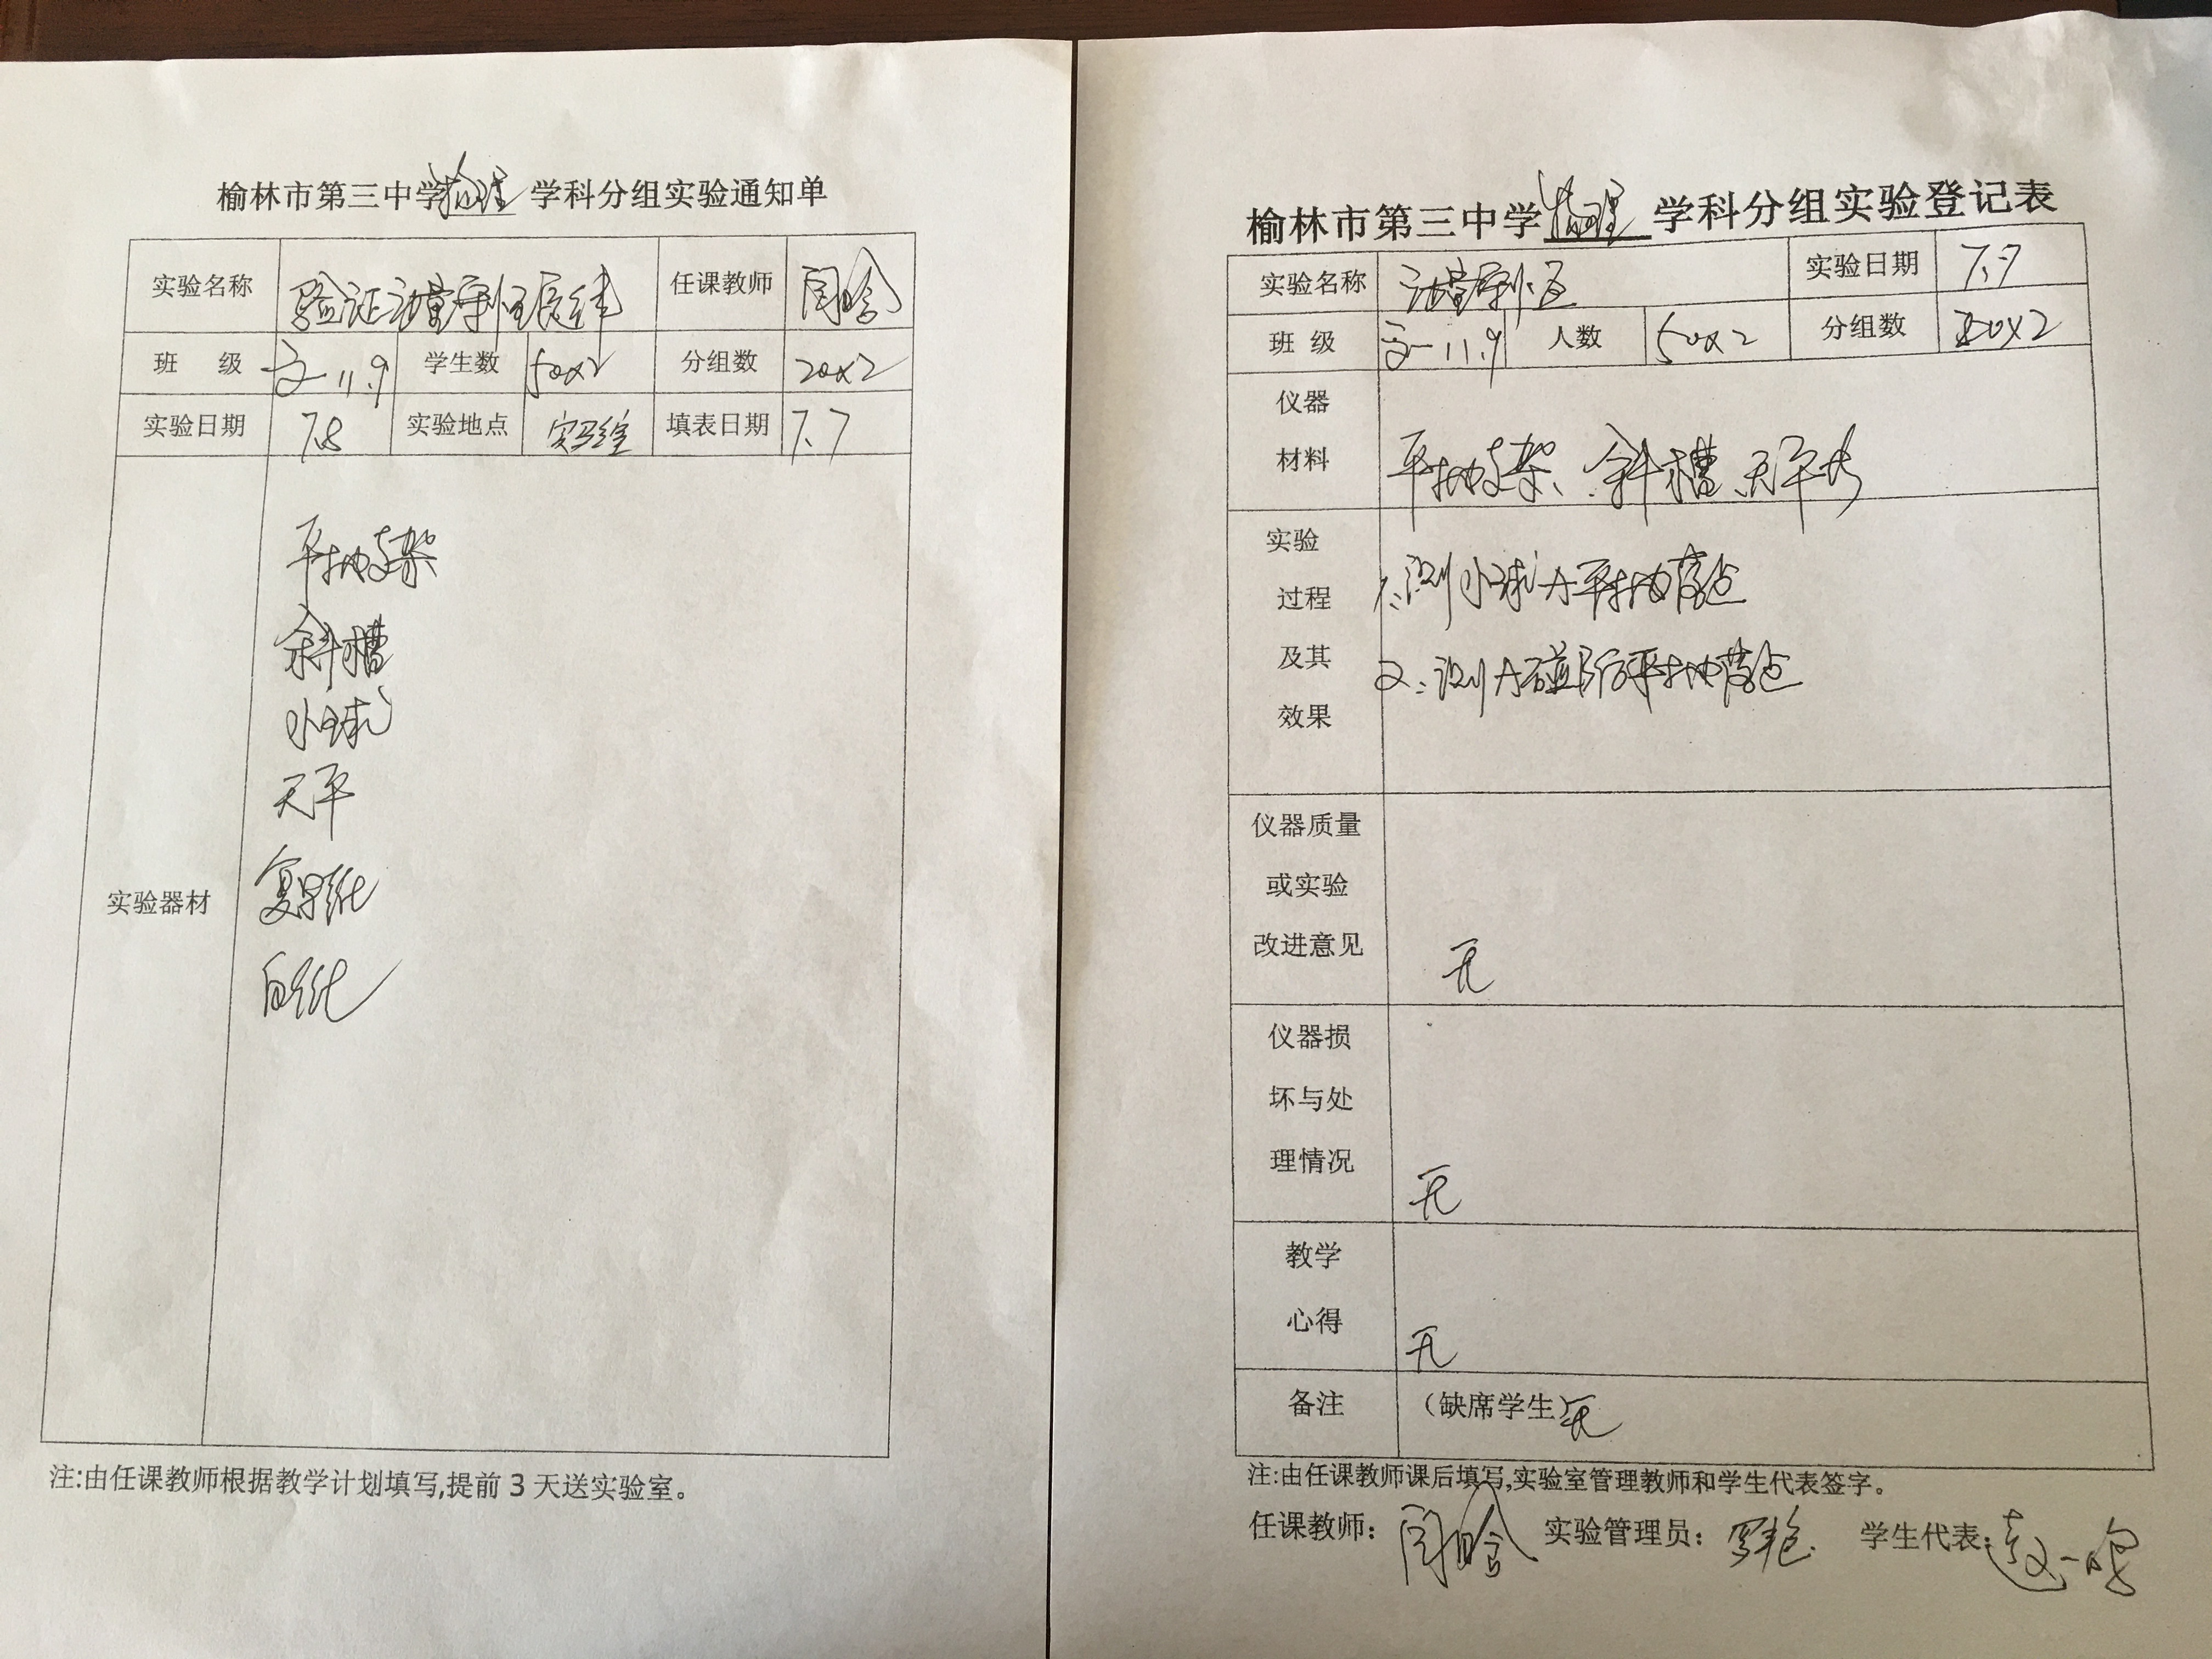 榆林市第三中学物理学科分组实验通知单
实验名称 验证动量守恒定律 任课教师
班 级 11.9 学生数 50x2 分组数 20x2
实验日期 7.8 实验地点 实验室 填表日期 7.7
实验器材
平抛支架
斜槽
小球
天平
复写纸
白纸
注:由任课教师根据教学计划填写,提前 3 天送实验室。
榆林市第三中学物理学科分组实验登记表
实验名称 动量守恒 实验日期 7.7
班 级 11.9 人数 50x2 分组数 20x2
仪器
材料 平抛支架、斜槽、天平
实验
过程 1、测小球A平抛落点
及其 2、测A碰B后平抛落点
效果
仪器质量
或实验
改进意见 无
仪器损
坏与处
理情况 无
教学
心得 无
备注 (缺席学生)无
注:由任课教师课后填写,实验室管理教师和学生代表签字。
任课教师: 实验管理员: 罗艳 学生代表: